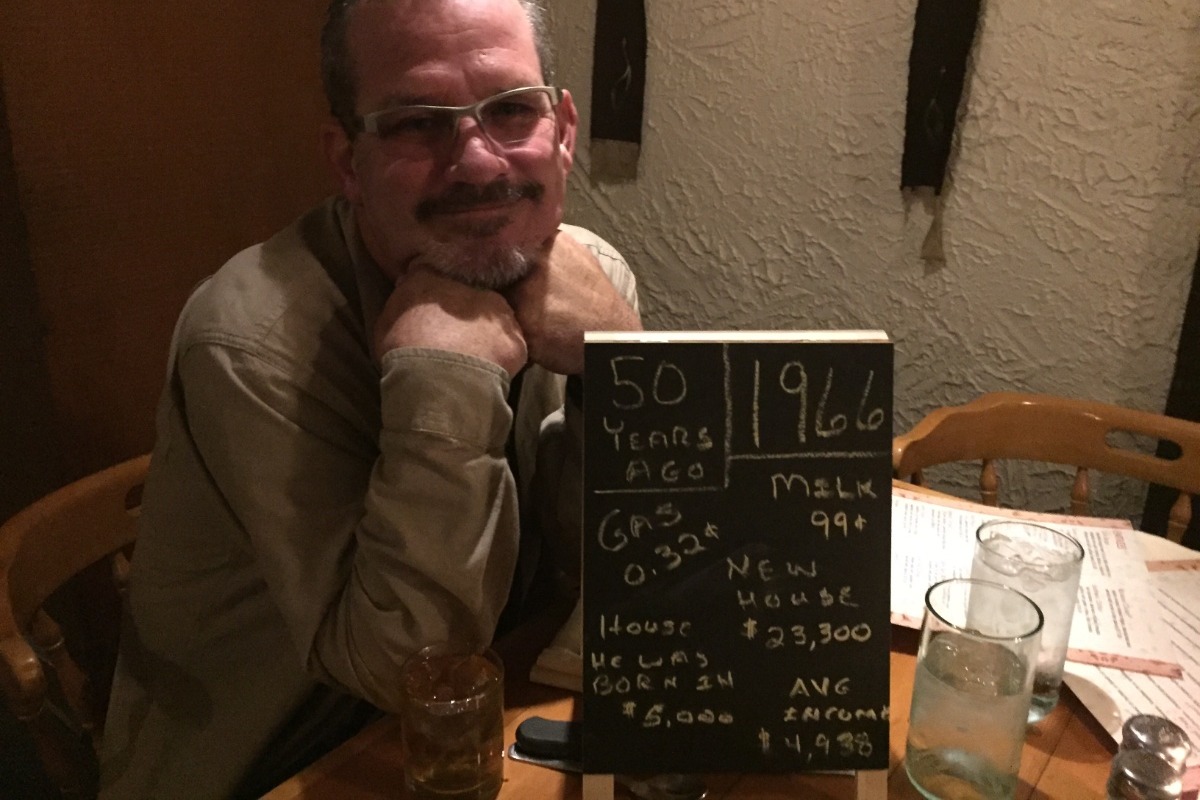 50
YEARS
AGO
1966
GAS
0.32¢
MILK
99¢
NEW
HOUSE
$23,300
HOUSE
HE WAS
BORN IN
$5,000
AVG
INCOME
$4,938